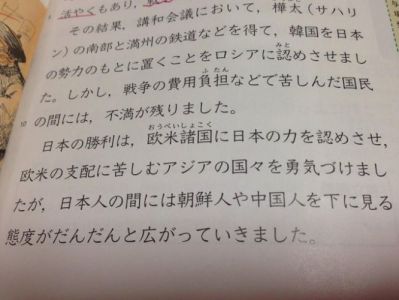 活やくもあり，
その結果，講和会議において，樺太（サハリ
ン）の南部と満州の鉄道などを得て，韓国を日本
の勢力のもとに置くことをロシアに認めさせまし
た。しかし，戦争の費用負担などで苦しんだ国民
の間には，不満が残りました。
日本の勝利は，欧米諸国に日本の力を認めさせ，
欧米の支配に苦しむアジアの国々を勇気づけまし
たが，日本人の間には朝鮮人や中国人を下に見る
態度がだんだんと広がっていきました。